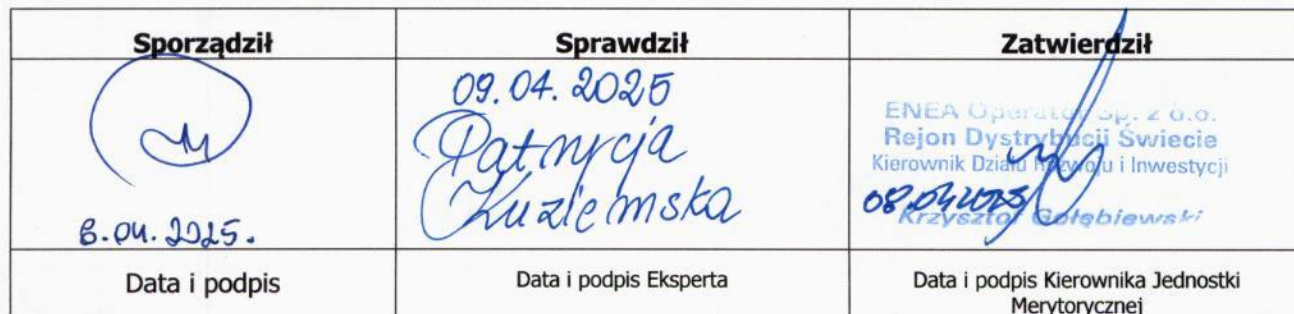 Sporządził
Sprawdził
Zatwierdził
8.04.2025.
09.04.2025
Patrycja
Kuziemska
ENEA Operator Sp. z o.o.
Rejon Dystrybucji Świecie
Kierownik Działu Rozwoju i Inwestycji
08.04.2025
Krzysztof Gołębiewski
Data i podpis
Data i podpis Eksperta
Data i podpis Kierownika Jednostki
Merytorycznej